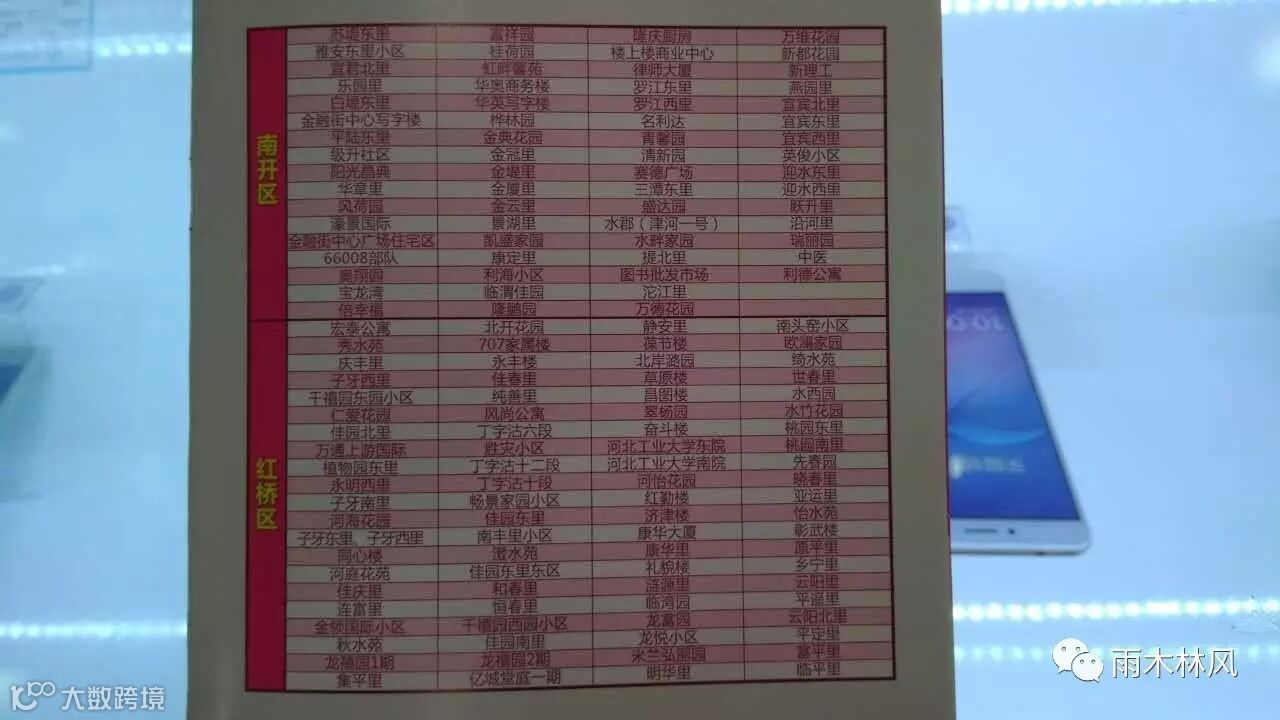 南开区
苏堤东里 富祥园 隆庆厨房 万维花园
雅安东里小区 桂荷园 楼上楼商业中心 新都花园
宜君北里 虹畔馨苑 律师大厦 新理工
乐园里 华奥商务楼 罗江东里 燕园里
白堤东里 华英写字楼 罗江西里 宜宾北里
金融街中心写字楼 桦林园 名利达 宜宾东里
平陆东里 金典花园 青馨园 宜宾西里
级升社区 金冠里 清新园 英俊小区
阳光晶典 金堤里 赛德广场 迎水东里
华章里 金厦里 三潭东里 迎水西里
风荷园 金云里 盛达园 跃升里
濠景国际 景湖里 水郡（津河一号） 沿河里
金融街中心广场住宅区 凯盛家园 水畔家园 瑞丽园
66008部队 康定里 堤北里 中医
奥翔园 利海小区 图书批发市场 利德公寓
宝龙湾 临渭佳园 沱江里
倍幸福 隆鹏园 万德花园
红桥区
宏泰公寓 北开花园 静安里 南头窑小区
秀水苑 707家属楼 葆节楼 欧澜家园
庆丰里 永丰楼 北岸璐园 绮水苑
子牙西里 佳春里 草原楼 世春里
千禧园东园小区 纯善里 昌图楼 水西园
仁爱花园 风尚公寓 翠杨园 水竹花园
佳园北里 丁字沽六段 奋斗楼 桃园东里
万通上游国际 胜灾小区 河北工业大学东院 桃园南里
植物园东里 丁字沽十二段 河北工业大学南院 先春园
永明西里 丁字沽十段 河怡花园 晓春里
子牙南里 畅景家园小区 红勤楼 亚运里
河海花园 佳园东里 济津楼 怡水苑
子牙东里、子牙西里 南丰里小区 康华大厦 彰武楼
同心楼 澄水苑 康华里 原平里
河庭花苑 佳园东里东区 礼貌楼 乡宁里
佳庆里 和春里 涟源里 云阳里
连富里 恒春里 临湾园 平遥里
金领国际小区 千禧园西园小区 龙富园 云阳北里
秋水苑 佳园南里 龙悦小区 平定里
龙禧园1期 龙禧园2期 米兰弘丽园 富平里
集平里 亿城堂庭一期 明华里 临平里
10:0
雨木林风
大数跨境